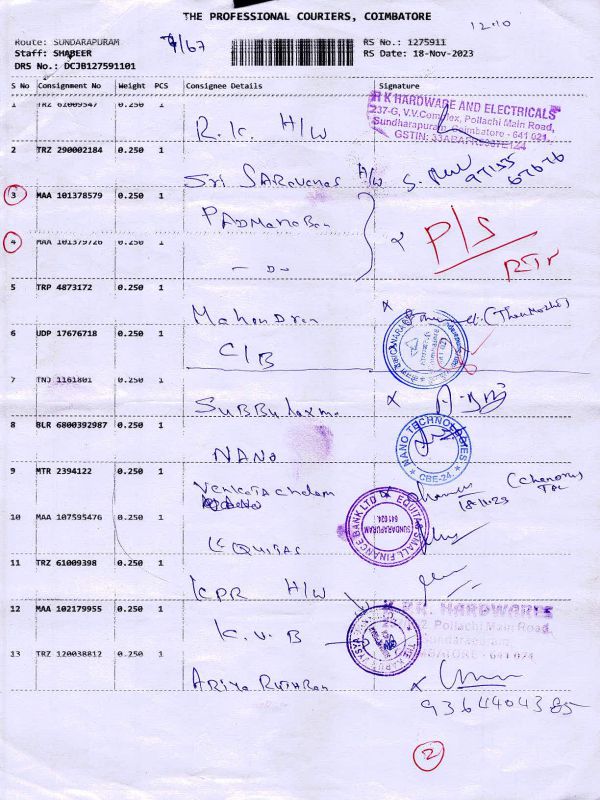 THE PROFESSIONAL COURIERS, COIMBATORE
12.10
Route: SUNDARAPURAM
Staff: SHABEER
DRS No.: DCJB127591101
RS No.: 1275911
RS Date: 18-Nov-2023
S No Consignment No Weight PCS Consignee Details Signature
1 TRZ 61009547 0.250 1 R.K. H/W
R K HARDWARE AND ELECTRICALS
237-G, V.V.Complex, Pollachi Main Road,
Sundharapuram, Coimbatore - 641 021.
2 TRZ 290002184 0.250 1 Sri SARavanas H/W
3 MAA 101378579 0.250 1 PADMANaBan P/S
4 MAA 101379726 0.250 1 — D —
5 TRP 4873172 0.250 1 MahenDran
6 UDP 17676718 0.250 1 C/B
7 TNJ 1161801 0.250 1
8 BLR 6800392987 0.250 1 NANO
NANO TECHNOLOGIES
CBE-24.
9 MTR 2394122 0.250 1 Venkatachalam
18/11/23
10 MAA 107595476 0.250 1 EQUITAS
EQUITAS SMALL FINANCE BANK LTD
SUNDARAPURAM
641 024.
11 TRZ 61009398 0.250 1 KPR H/W
12 MAA 102179955 0.250 1 K.V.B
HARDWARES
Pollachi Main Road,
13 TRZ 120038812 0.250 1 ARiya RuthRan
2